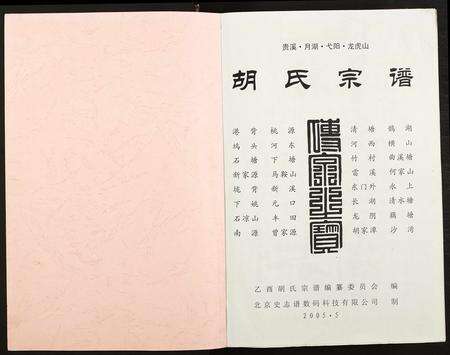 贵溪·月湖·弋阳·龙虎山
胡氏宗谱
传家至宝
港背 桃源 清塘 鹊湖
坞头 河东 河西 横山
石塘 下塘 竹村 曲溪塘
新家源 马鞍山 雷溪 何家山
垅背 新溪 东门外 永上
下姚 元口 长湖 清水塘
石凉山 丰田 龙 藕塘
南源 曾家源 胡家漳 沙湾
乙酉胡氏宗谱编纂委员会 编
北京史志谱数码科技有限公司 制
2005.5